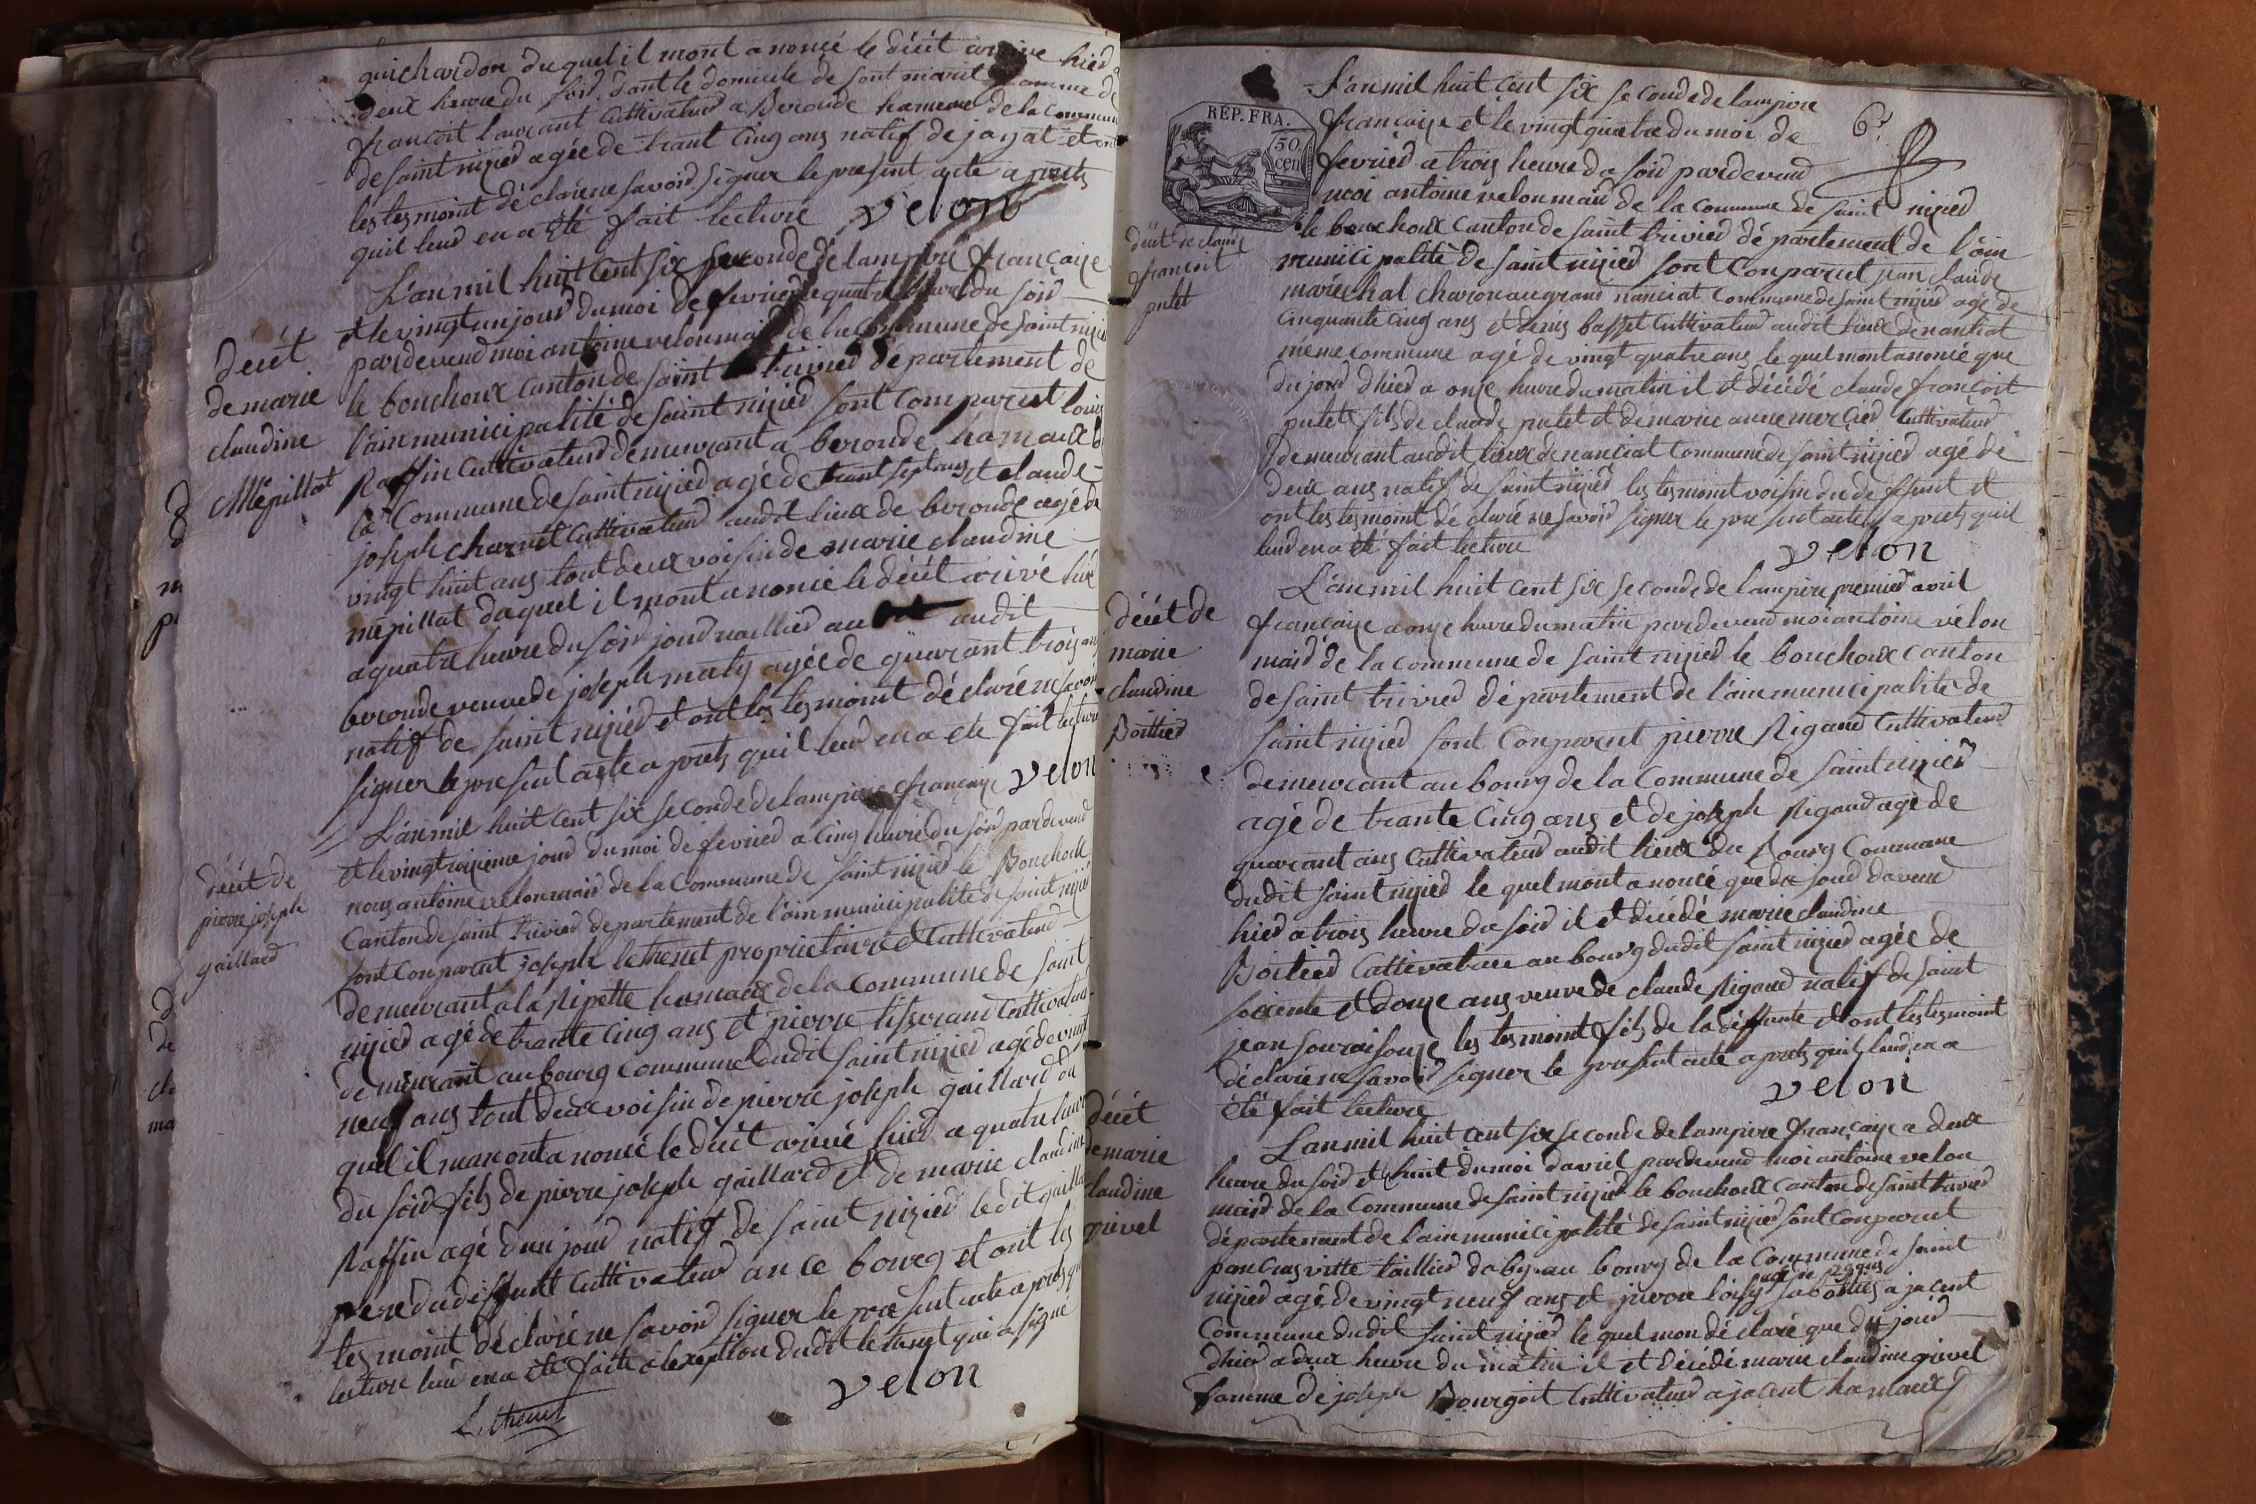 guichardon du quel il mont anoncé le décét arrive hier
deux heure du soir dont le domicile de sont marit famme de
françoit laurant Cultivateur a Beronde hameau de la commune
de saint nizier agée de trant cinq ans natif de jayat et ont
les tesmoint déclaré ne savoir signer le present acte a prets
quil leur en a été fait lecture velon
décét
de marie
claudine
Mépillat
L'an mil huit cent six seconde de lampire françaize
et le vingt un jour du moi de fevrier a quatre heure du soir
pardevend moi antoine velon mair de la commune de saint nizier
le bouchoux canton de saint trivier département de
l'ain municipalité de saint nizier sont comparut louis
Raffin Cultivateur demeurant a beronde hamaux de
la Commune de saint nizier agé de trant sept ans et claude
joseph charnet Cultivateur audit lieux de beronde agé de
vingt huit ans tout deux voisin de marie claudine
mépillat daquel il mont anoncé le décét arivé hier
a quatre heure du soir journaillier au audit
beronde veuve de joseph maty agée de quarant trois ans
natif de saint nizier et ont les tesmoint déclaré ne savoir
signer le present acte a prets quil leur en a été fait lecture
velon
décét de
pierre joseph
gaillard
L'an mil huit cent six seconde de lampire françaize
et le vingt troizieme jour du moi de fevrier a cinq heure du soir pardevend
nous antoine velon mair de la Commune de saint nizier le Bouchoux
Canton de saint trivier departement de l'ain municipalité de saint nizier
sont comparut joseph lethenet proprietaire et Cultivateur
demeurant a la Ripette hamaux de la Commune de saint
nizier agé de trante cinq ans et pierre tisserant Cultivateur
demeurant au bourg commune dudit saint nizier agé de vingt
neuf ans tout deux voisin de pierre joseph gaillard du
quel il man ont anoncé le décét arivé hier a quatre heure
du soir fils de pierre joseph gaillard et de marie claudine
Raffin agé dun jour natif de saint nizier ledit gaillard
pere du deffunt Cultivateur au ce bourg et ont les
tesmoint déclaré ne savoir signer le present acte a prets que
lecture leur en a été faite a lexeption dudit lethenet qui a signé
velon
RÉP. FRA.
50 cen
6e
décét de claude
françoit
putet
L'an mil huit cent six seconde de lampire
françaize et le vingt quatre du moi de
fevrier a trois heure du soir pardevend
moi antoine velon mair de la commune de saint nizier
le bouchoux canton de saint trivier département de l'ain
municipalité de saint nizier sont Conparut jean claude
maréchal charon au grand nanciat commune de saint nizier agé de
cinquante cinq ans et denis basset Cultivateur audit lieux de nantiat
méme commune agé de vingt quatre ans le quel mont anoncé que
du jour dhier a onze heure du matin il et décédé claude françoit
putet fils de claude putet et de marie anne mercier Cultivateur
demeurant audit lieux de nanciat commune de saint nizier agé de
deux ans natif de saint nizier les tesmoint voisin du deffunt et
ont les tesmoint déclaré ne savoir signer le present acte a prets quil
leur en a été fait lecture
velon
décét de
marie
claudine
Boittier
L'an mil huit cent six seconde de lampire premier avril
françaize a onze heure du matin pardevend moi antoine vélon
mair de la commune de saint nizier le bouchoux canton
de saint trivier département de l'ain municipalité de
saint nizier sont Conparut pierre Rigaud Cultivateur
demeurant au bourg de la Commune de saint nizier
agé de trante cinq ans et de joseph Rigaud agé de
quarant ans Cultivateur audit lieux du Bourg Commune
dudit saint nizier le quel mont anoncé que du jour davend
hier a trois heure du soir il et décédé marie claudine
Boitier Cultivatrice au bourg dudit saint nizier agée de
soixente et douze ans veuve de claude Rigaud natif de saint
jean sour aisouze les tesmoint fils de la deffunte et ont les tesmoint
déclaré ne savoir signer le present acte a prets quil leur en a
été fait lecture
velon
décét
de marie
claudine
grivel
L'an mil huit cent six seconde de lampire françaize a deux
heure du soir et huit du moi davril pardevend moi antoine velon
mair de la Commune de saint nizier le bouchoux canton de saint trivier
département de l'ain municipalité de saint nizier sont conparut
pancras vitte taillier daby au bourg de la Commune de saint
nizier agé de vingt neuf ans et pierre loisy sabottier a jacent
Commune dudit saint nizier le quel mon déclaré que du jour
dhier a deux heure du matin il et décédé marie claudine grivel
famme de joseph Bourgoit Cultivateur a jacent hamaux